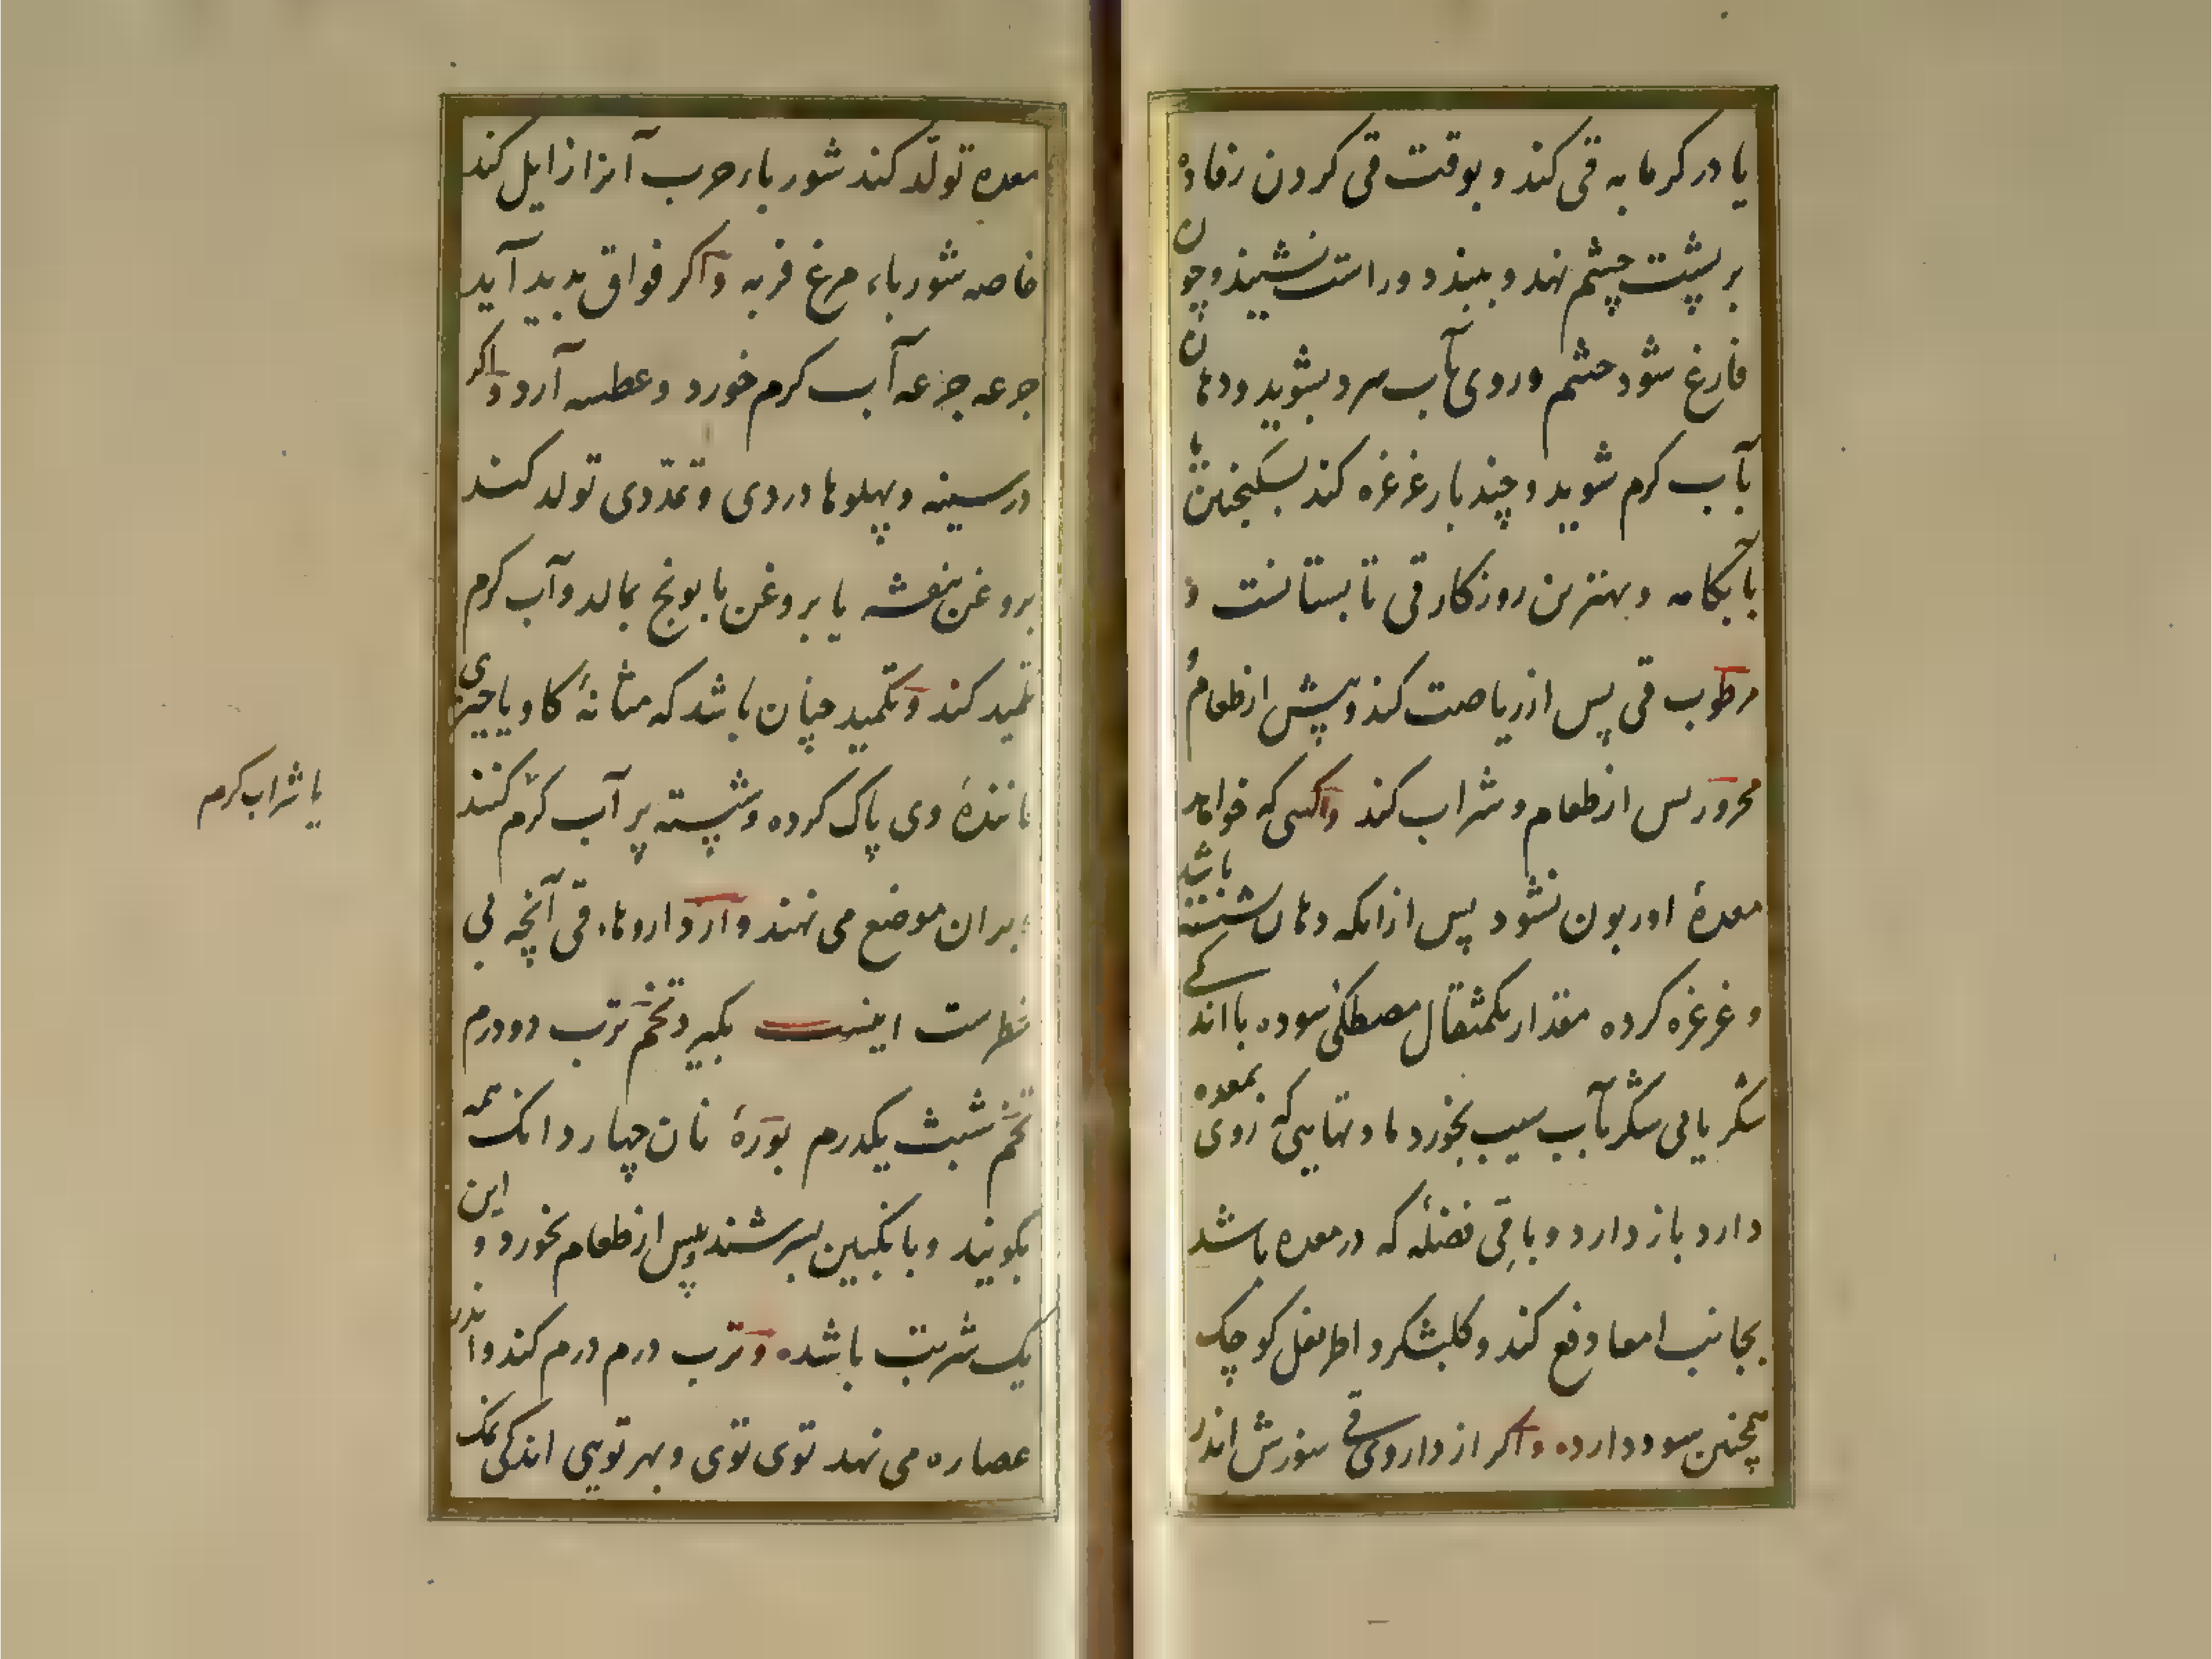 یا در کرمابه قی کند و بوقت قی کردن رفاده
بر پشت چشم نهد و ببندد و راست نشیند و چون
فارغ شود چشم و روی بآب سرد بشوید و دهان
بآب کرم شوید و چند بار غرغره کند بسکنجبین یا
بآبکامه و بهترین روزکار قی تابستانست و
مرطوب قی پس از ریاضت کند و پیش از طعام و
محرور پس از طعام و شراب کند و آنکسی که خواهد
معدهٔ او زبون نشود پس از انکه دهان شسته باشد
و غرغره کرده مقدار یکمثقال مصطکی سوده با اندکی
شکر یا بی شکر بآب سیب بخورد تا دتهایی که روی بمعده
دارد باز دارد و باقی فضلهٔ که در معده باشد
بجانب امعا دفع کند و کلبشکر و اطریفل کوچک
همچنین سود دارد و اکر از داروی قی سوزش اندر
معده تولّد کند شورباء چرب آنرا زایل کند
خاصه شورباء مرغ فربه و اکر فواق بدید آید
جرعه جرعه آب کرم خورد و عطسه آرد و اکر
در سینه و پهلوها دردی و تمدّدی تولد کند
بروغن بنفشه یا بروغن بابونج بمالد و آب کرم
تکمید کند و تکمید چنان باشد که مثانهٔ کاو یا چیزی
مانندهٔ وی پاک کرده و شسته پر آب کرم کنند
یا شراب کرم
و بران موضع می نهند و از داروهاء قی آنچه بی
خطرست اینست بکیرد تخم ترب دو درم
تخم شبث یکدرم بورهٔ نان چهار دانک همه
بکوبند و بانکبین بسرشند و پس از طعام بخورد و این
یک شربت باشد و ترب درم درم کند و اندر
عصاره می نهد توی توی و بهر تویی اندکی نمک